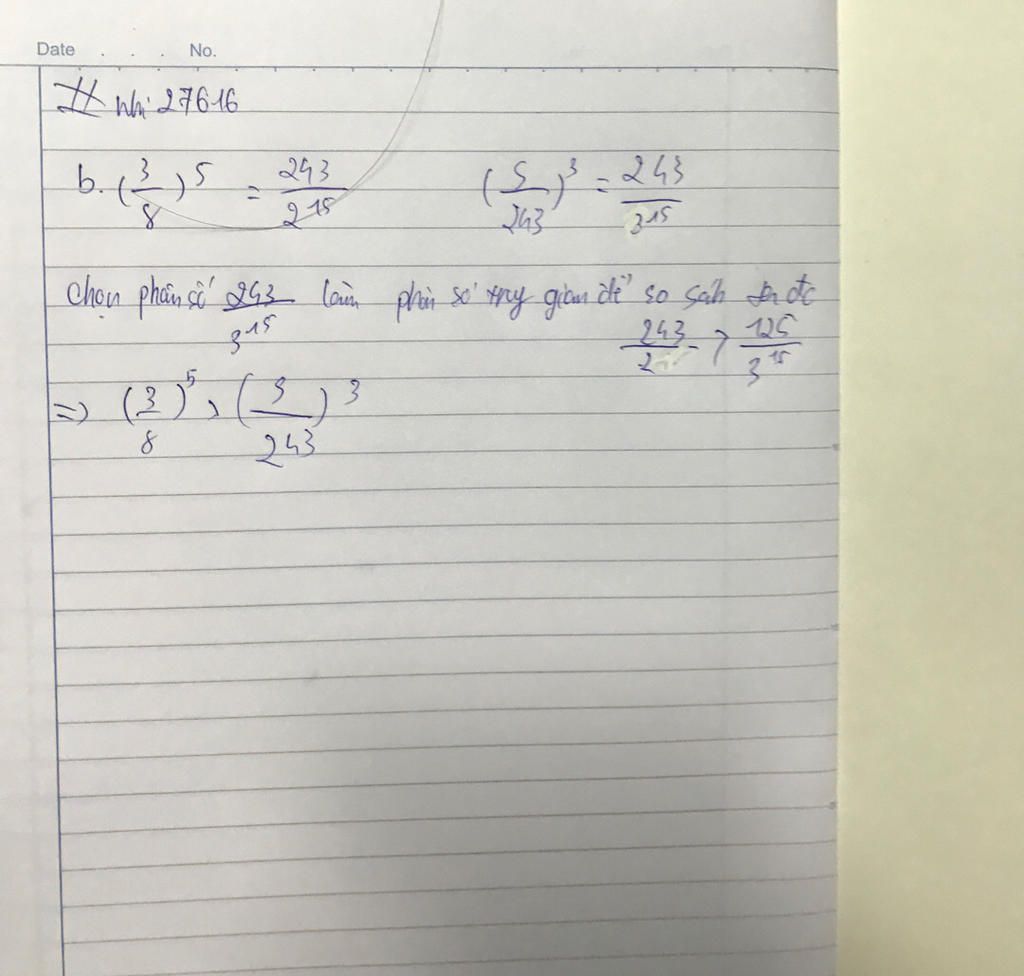 Date . . . No.
# Nhi 27616
b. (3/8)^5 = 243/2^15 (5/243)^3 = 243/3^15
Chọn phân số 243/3^15 làm phân số gian để so sánh ta đc
243/2 > 125/3^15
=> (3/8)^5 > (5/243)^3